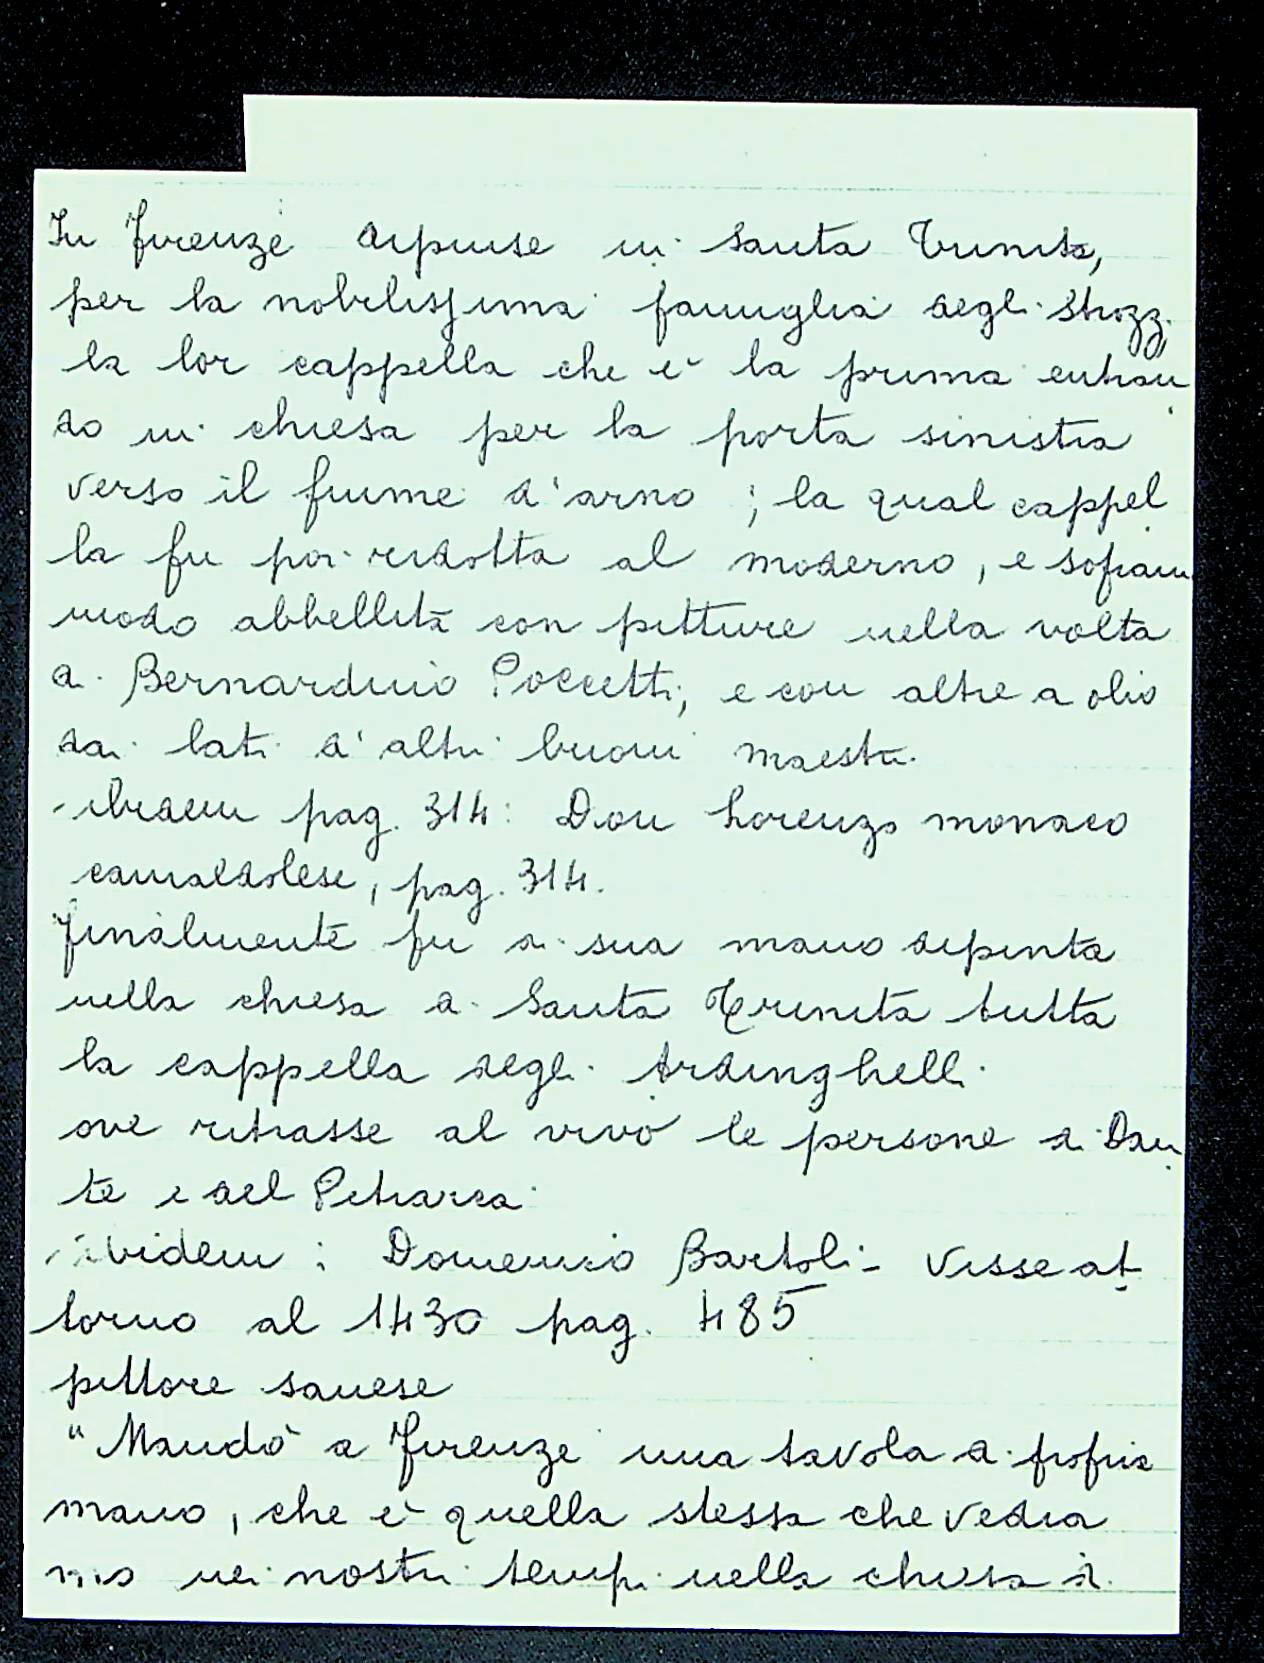 In Firenze dipinse in Santa Trinita,
per la nobilissima famiglia degli Strozzi
la lor cappella che è la prima entran
do in chiesa per la porta sinistra
verso il fiume d'arno ; la qual cappel
la fu poi ridotta al moderno, e sopram
modo abbellita con pitture nella volta
di Bernardino Poccetti; e con altre a olio
dai lati d'altri buoni maestri.
- ibidem pag. 314: Don Lorenzo monaco
camaldolese, pag. 314.
Finalmente fu di sua mano dipinta
nella chiesa di Santa Trinita tutta
la cappella degli Ardinghelli
ove ritrasse al vivo le persone di Dan
te e del Petrarca
- ibidem : Domenico Bartoli - Visse at
torno al 1430 pag. 485
pittore sanese
"Mandò a Firenze una tavola di propria
mano, che è quella stessa che vedia
mo nei nostri tempi nella chiesa di